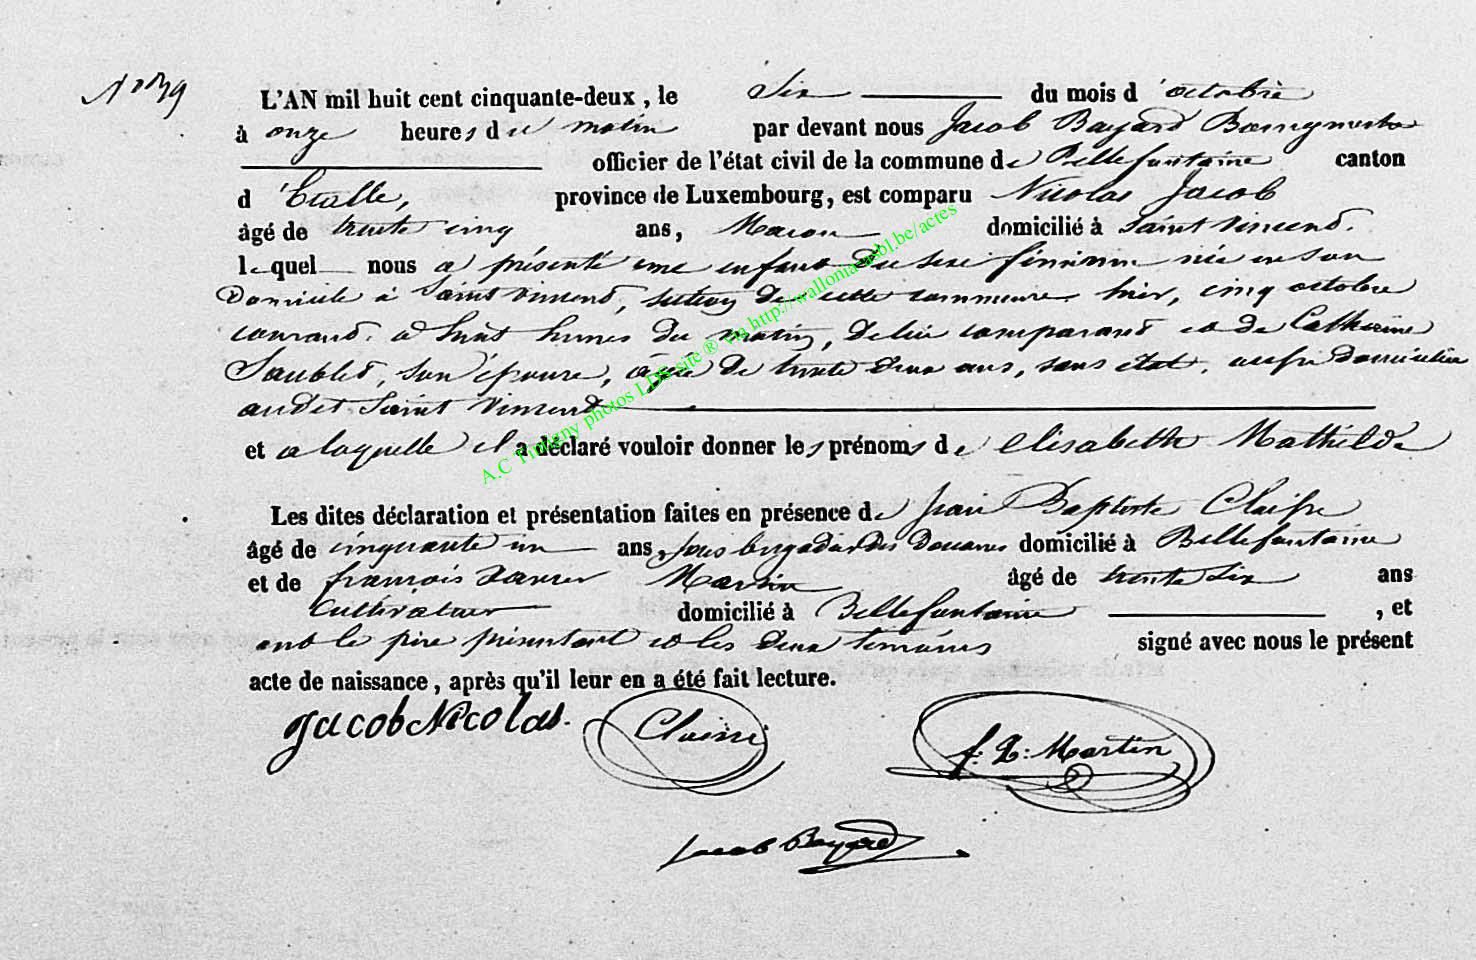 N° 39
L'AN mil huit cent cinquante-deux, le Six du mois d'octobre
à onze heures du matin par devant nous Jacob Bayard Bourgmestre
officier de l'état civil de la commune de Bellefontaine canton
d'Etalle, province de Luxembourg, est comparu Nicolas Jacob
âgé de trente cinq ans, Macon domicilié à Saint Vincent.
lequel nous a présenté une enfant du sexe féminin née en son
Domicile à Saint Vincent, section de cette commune hier, cinq octobre
courant. à huit heures du matin, de lui comparant et de Catherine
Saublet, son épouse, âgée de trente deux ans, sans état, aussi domiciliée
audit Saint Vincent
et a laquelle il a déclaré vouloir donner les prénoms de elisabeth Mathilde
Les dites déclaration et présentation faites en présence de Jean Baptiste Claisse
âgé de cinquante un ans, sous brigadier des douanes domicilié à Bellefontaine
et de françois Xavier Martin âgé de trente six ans
Cultivateur domicilié à Bellefontaine , et
ont le père présentant et les deux temoins signé avec nous le présent
acte de naissance, après qu'il leur en a été fait lecture.
Jacob Nicolas. f: X: Martin
Jacob Bayard
A.C Tintigny photos LDS site ® via http://wallonia-asbl.be/actes